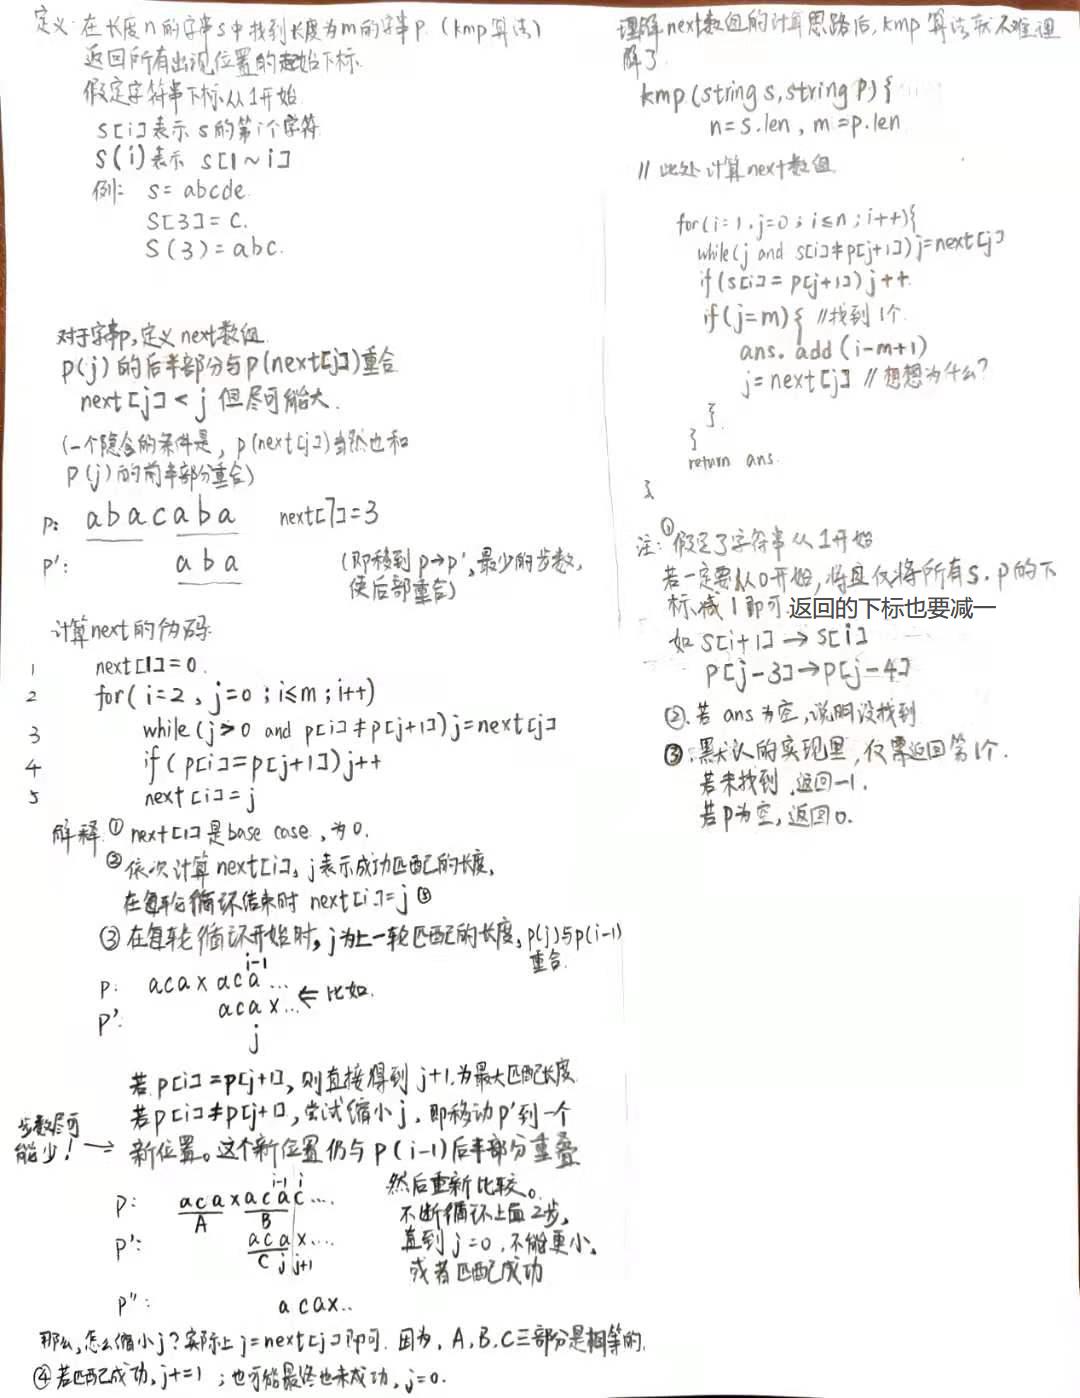 定义:在长度n的字串s中找到长度为m的字串p.(kmp算法)
返回所有出现位置的起始下标.
假定字符串下标从1开始
s[i]表示s的第i个字符
S(i)表示 S[1~i]
例: S= abcde.
S[3]=C.
S(3)=abc.
对于字串p,定义next数组.
p(j)的后半部分与p(next[j])重合
next[j]<j 但尽可能大.
(一个隐含的条件是,p(next[j])当然也和
p(j)的前半部分重合)
p: abacaba next[7]=3
p': aba (即移到p→p',最少的步数,
使后部重合)
计算next的伪码:
1 next[1]=0.
2 for(i=2,j=0;i≤m;i++)
3 while(j>0 and p[i]≠p[j+1])j=next[j]
4 if(p[i]=p[j+1])j++
5 next[i]=j
解释:①next[1]是base case,为0.
②依次计算next[i],j表示成功匹配的长度,
在每轮循环结束时 next[i]=j⑤
③在每轮循环开始时,j为上一轮匹配的长度,p(j)与p(i-1)
重合.
i-1
p: acaxaca...
p': acax... ⇐比如.
j
若p[i]=p[j+1],则直接得到j+1.为最大匹配长度
若p[i]≠p[j+1],尝试缩小j,即移动p'到一个
新位置。这个新位置仍与p(i-1)后半部分重叠
步数尽可
能少!→
i-1 i
p: acaxacac....
A B
p': acax....
C j j+1
p": acax..
然后重新比较。
不断循环上面2步,
直到j=0,不能更小.
或者匹配成功
那么,怎么缩小j?实际上j=next[j]即可.因为,A,B,C三部分是相等的.
④若匹配成功,j+=1;也可能最终也未成功,j=0.
理解next数组的计算思路后,kmp算法就不难理
解了.
kmp(string s,string p){
n=s.len,m=p.len
//此处计算next数组.
for(i=1,j=0;i≤n;i++){
while(j and s[i]≠p[j+1])j=next[j]
if(s[i]=p[j+1])j++
if(j=m){ //找到1个.
ans.add(i-m+1)
j=next[j] //想想为什么?
}
}
return ans.
}
注:①假定了字符串从1开始
若一定要从0开始,将且仅将所有s.p的下
标减1即可.返回的下标也要减一
如S[i+1]→S[i]
p[j-3]→p[j-4]
②.若ans为空,说明没找到
③.默认的实现里,仅需返回第1个.
若未找到,返回-1.
若p为空,返回0.